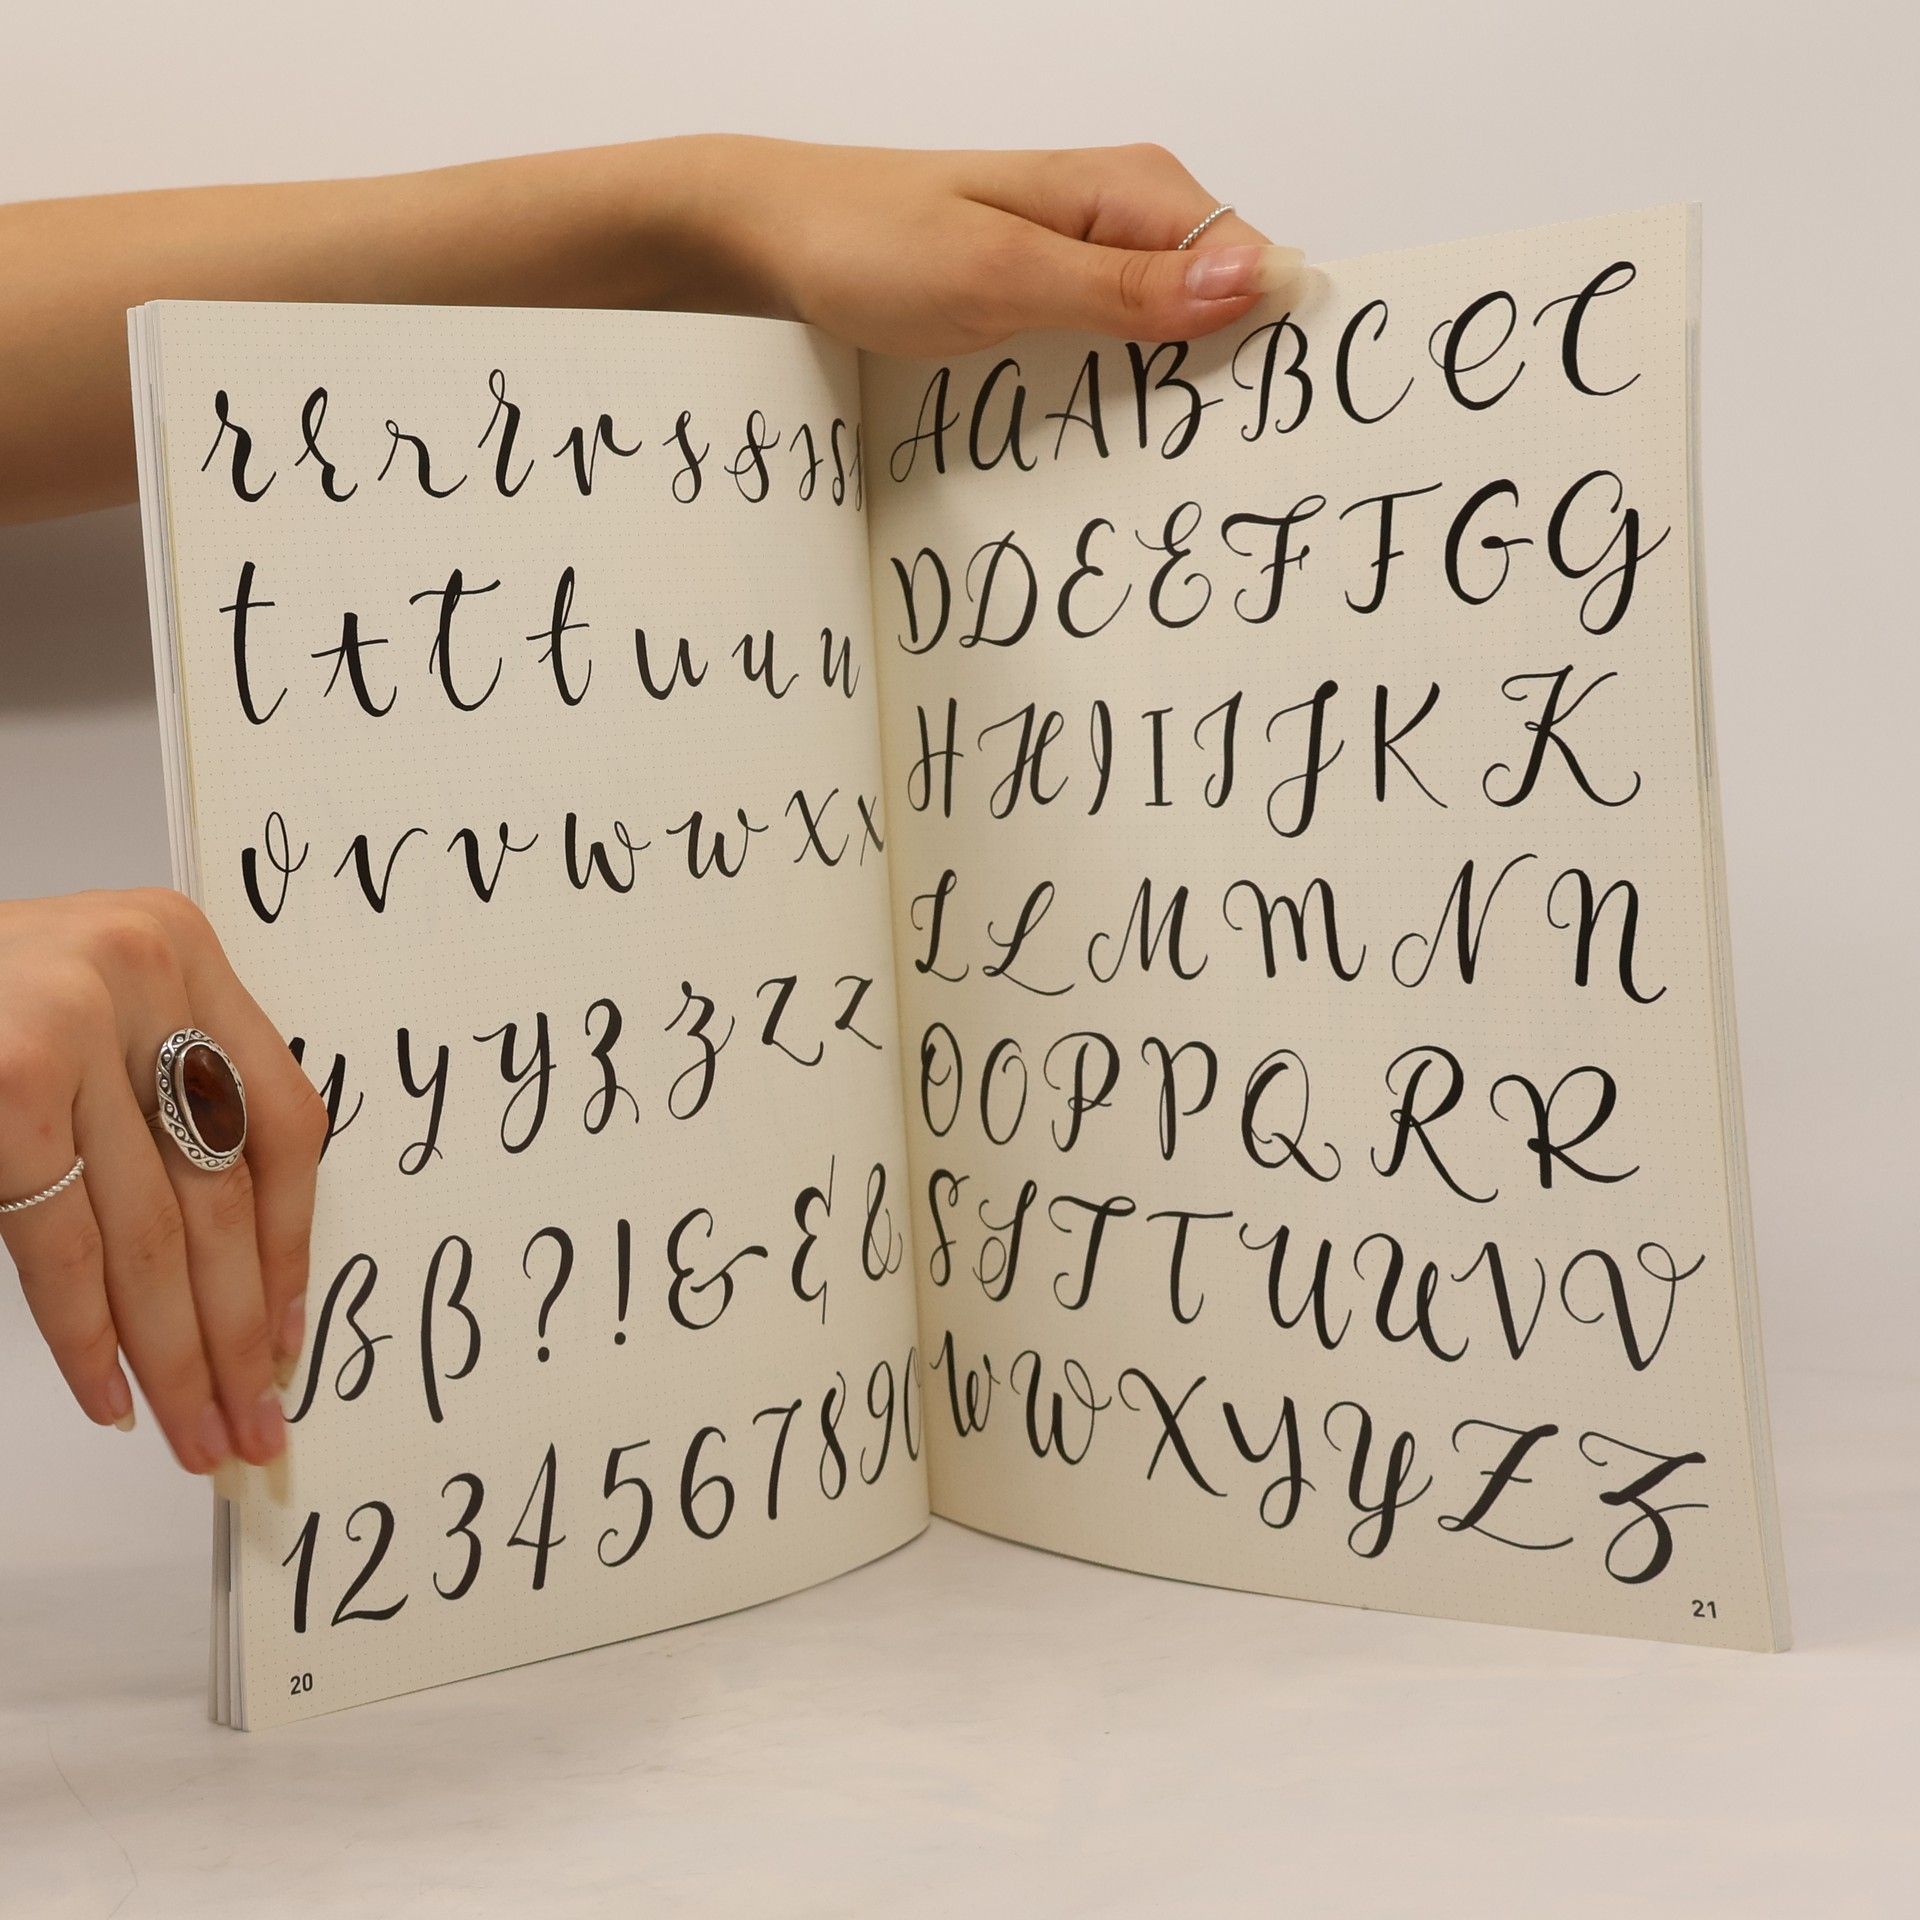 r r r r r s s s s s
t t t t u u u
v v v w w x x
y y y z z z z
ß ß ? ! & & &
1 2 3 4 5 6 7 8 9 0
20
A A A B B C C C
D D E E F F G G
H H I I J J K K
L L M M N N
O O P P Q R R
S S T T U U V V
W W X Y Y Z Z
21